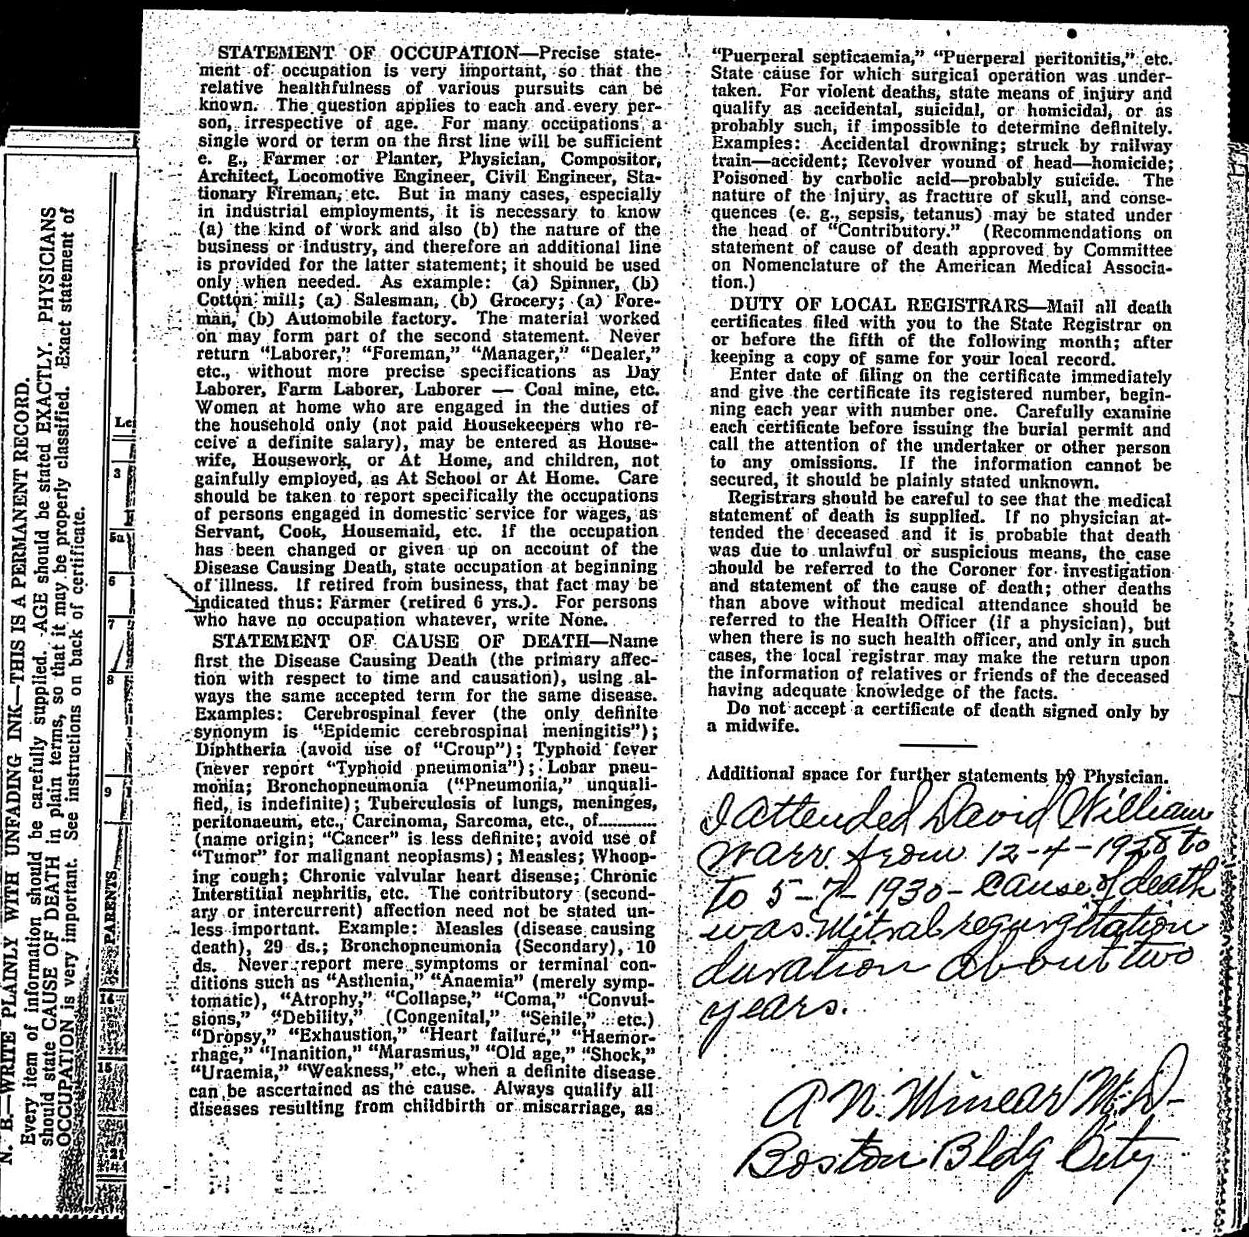 STATEMENT OF OCCUPATION—Precise state-
ment of occupation is very important, so that the
relative healthfulness of various pursuits can be
known. The question applies to each and every per-
son, irrespective of age. For many occupations a
single word or term on the first line will be sufficient
e. g., Farmer or Planter, Physician, Compositor,
Architect, Locomotive Engineer, Civil Engineer, Sta-
tionary Fireman, etc. But in many cases, especially
in industrial employments, it is necessary to know
(a) the kind of work and also (b) the nature of the
business or industry, and therefore an additional line
is provided for the latter statement; it should be used
only when needed. As example: (a) Spinner, (b)
Cotton mill; (a) Salesman, (b) Grocery; (a) Fore-
man, (b) Automobile factory. The material worked
on may form part of the second statement. Never
return "Laborer," "Foreman," "Manager," "Dealer,"
etc., without more precise specifications as Day
Laborer, Farm Laborer, Laborer — Coal mine, etc.
Women at home who are engaged in the duties of
the household only (not paid Housekeepers who re-
ceive a definite salary), may be entered as House-
wife, Housework, or At Home, and children, not
gainfully employed, as At School or At Home. Care
should be taken to report specifically the occupations
of persons engaged in domestic service for wages, as
Servant, Cook, Housemaid, etc. If the occupation
has been changed or given up on account of the
Disease Causing Death, state occupation at beginning
of illness. If retired from business, that fact may be
indicated thus: Farmer (retired 6 yrs.). For persons
who have no occupation whatever, write None.
STATEMENT OF CAUSE OF DEATH—Name
first the Disease Causing Death (the primary affec-
tion with respect to time and causation), using al-
ways the same accepted term for the same disease.
Examples: Cerebrospinal fever (the only definite
synonym is "Epidemic cerebrospinal meningitis");
Diphtheria (avoid use of "Croup"); Typhoid fever
(never report "Typhoid pneumonia"); Lobar pneu-
monia; Bronchopneumonia ("Pneumonia," unquali-
fied, is indefinite); Tuberculosis of lungs, meninges,
peritonaeum, etc., Carcinoma, Sarcoma, etc., of...........
(name origin; "Cancer" is less definite; avoid use of
"Tumor" for malignant neoplasms); Measles; Whoop-
ing cough; Chronic valvular heart disease; Chronic
Interstitial nephritis, etc. The contributory (second-
ary or intercurrent) affection need not be stated un-
less important. Example: Measles (disease causing
death), 29 ds.; Bronchopneumonia (Secondary), 10
ds. Never report mere symptoms or terminal con-
ditions such as "Asthenia," "Anaemia" (merely symp-
tomatic), "Atrophy," "Collapse," "Coma," "Convul-
sions," "Debility," (Congenital," "Senile," etc.)
"Dropsy," "Exhaustion," "Heart failure," "Haemor-
rhage," "Inanition," "Marasmus," "Old age," "Shock,"
"Uraemia," "Weakness," etc., when a definite disease
can be ascertained as the cause. Always qualify all
diseases resulting from childbirth or miscarriage, as
"Puerperal septicaemia," "Puerperal peritonitis," etc.
State cause for which surgical operation was under-
taken. For violent deaths, state means of injury and
qualify as accidental, suicidal, or homicidal, or as
probably such, if impossible to determine definitely.
Examples: Accidental drowning; struck by railway
train—accident; Revolver wound of head—homicide;
Poisoned by carbolic acid—probably suicide. The
nature of the injury, as fracture of skull, and conse-
quences (e. g., sepsis, tetanus) may be stated under
the head of "Contributory." (Recommendations on
statement of cause of death approved by Committee
on Nomenclature of the American Medical Associa-
tion.)
DUTY OF LOCAL REGISTRARS—Mail all death
certificates filed with you to the State Registrar on
or before the fifth of the following month; after
keeping a copy of same for your local record.
Enter date of filing on the certificate immediately
and give the certificate its registered number, begin-
ning each year with number one. Carefully examine
each certificate before issuing the burial permit and
call the attention of the undertaker or other person
to any omissions. If the information cannot be
secured, it should be plainly stated unknown.
Registrars should be careful to see that the medical
statement of death is supplied. If no physician at-
tended the deceased and it is probable that death
was due to unlawful or suspicious means, the case
should be referred to the Coroner for investigation
and statement of the cause of death; other deaths
than above without medical attendance should be
referred to the Health Officer (if a physician), but
when there is no such health officer, and only in such
cases, the local registrar may make the return upon
the information of relatives or friends of the deceased
having adequate knowledge of the facts.
Do not accept a certificate of death signed only by
a midwife.
Additional space for further statements by Physician.
I attended David William
Warr from 12-4-1928 to
to 5-7-1930 - Cause of death
was Mitral regurgitation
duration about two
years.
A N. Minear M.D-
Boston Bldg City
N. B.—WRITE PLAINLY WITH UNFADING INK—THIS IS A PERMANENT RECORD.
Every item of information should be carefully supplied. AGE should be stated EXACTLY. PHYSICIANS
should state CAUSE OF DEATH in plain terms, so that it may be properly classified. Exact statement of
OCCUPATION is very important. See instructions on back of certificate.
3
5a
6
7
8
9
PARENTS
14
15
21